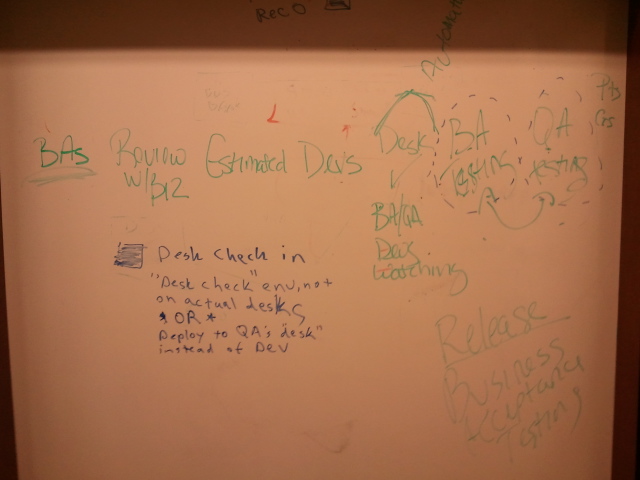 Rec O
Automate
BAs
Review
w/BIZ
Estimated
Devs
Desk
BA
Testing
QA
testing
BA/QA
Devs
watching
Desk check in
"Desk check" env, not
on actual desks
* OR *
Deploy to QA's "desk"
instead of DEV
Release
Business
Acceptance
Testing